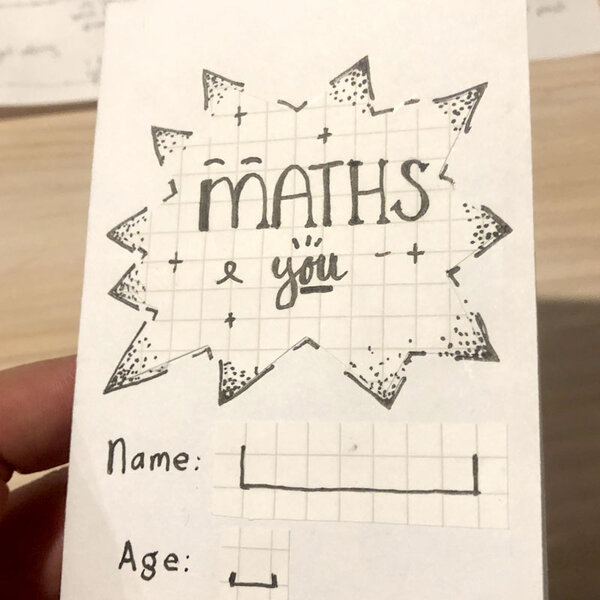 MATHS
& you
Name:
Age: